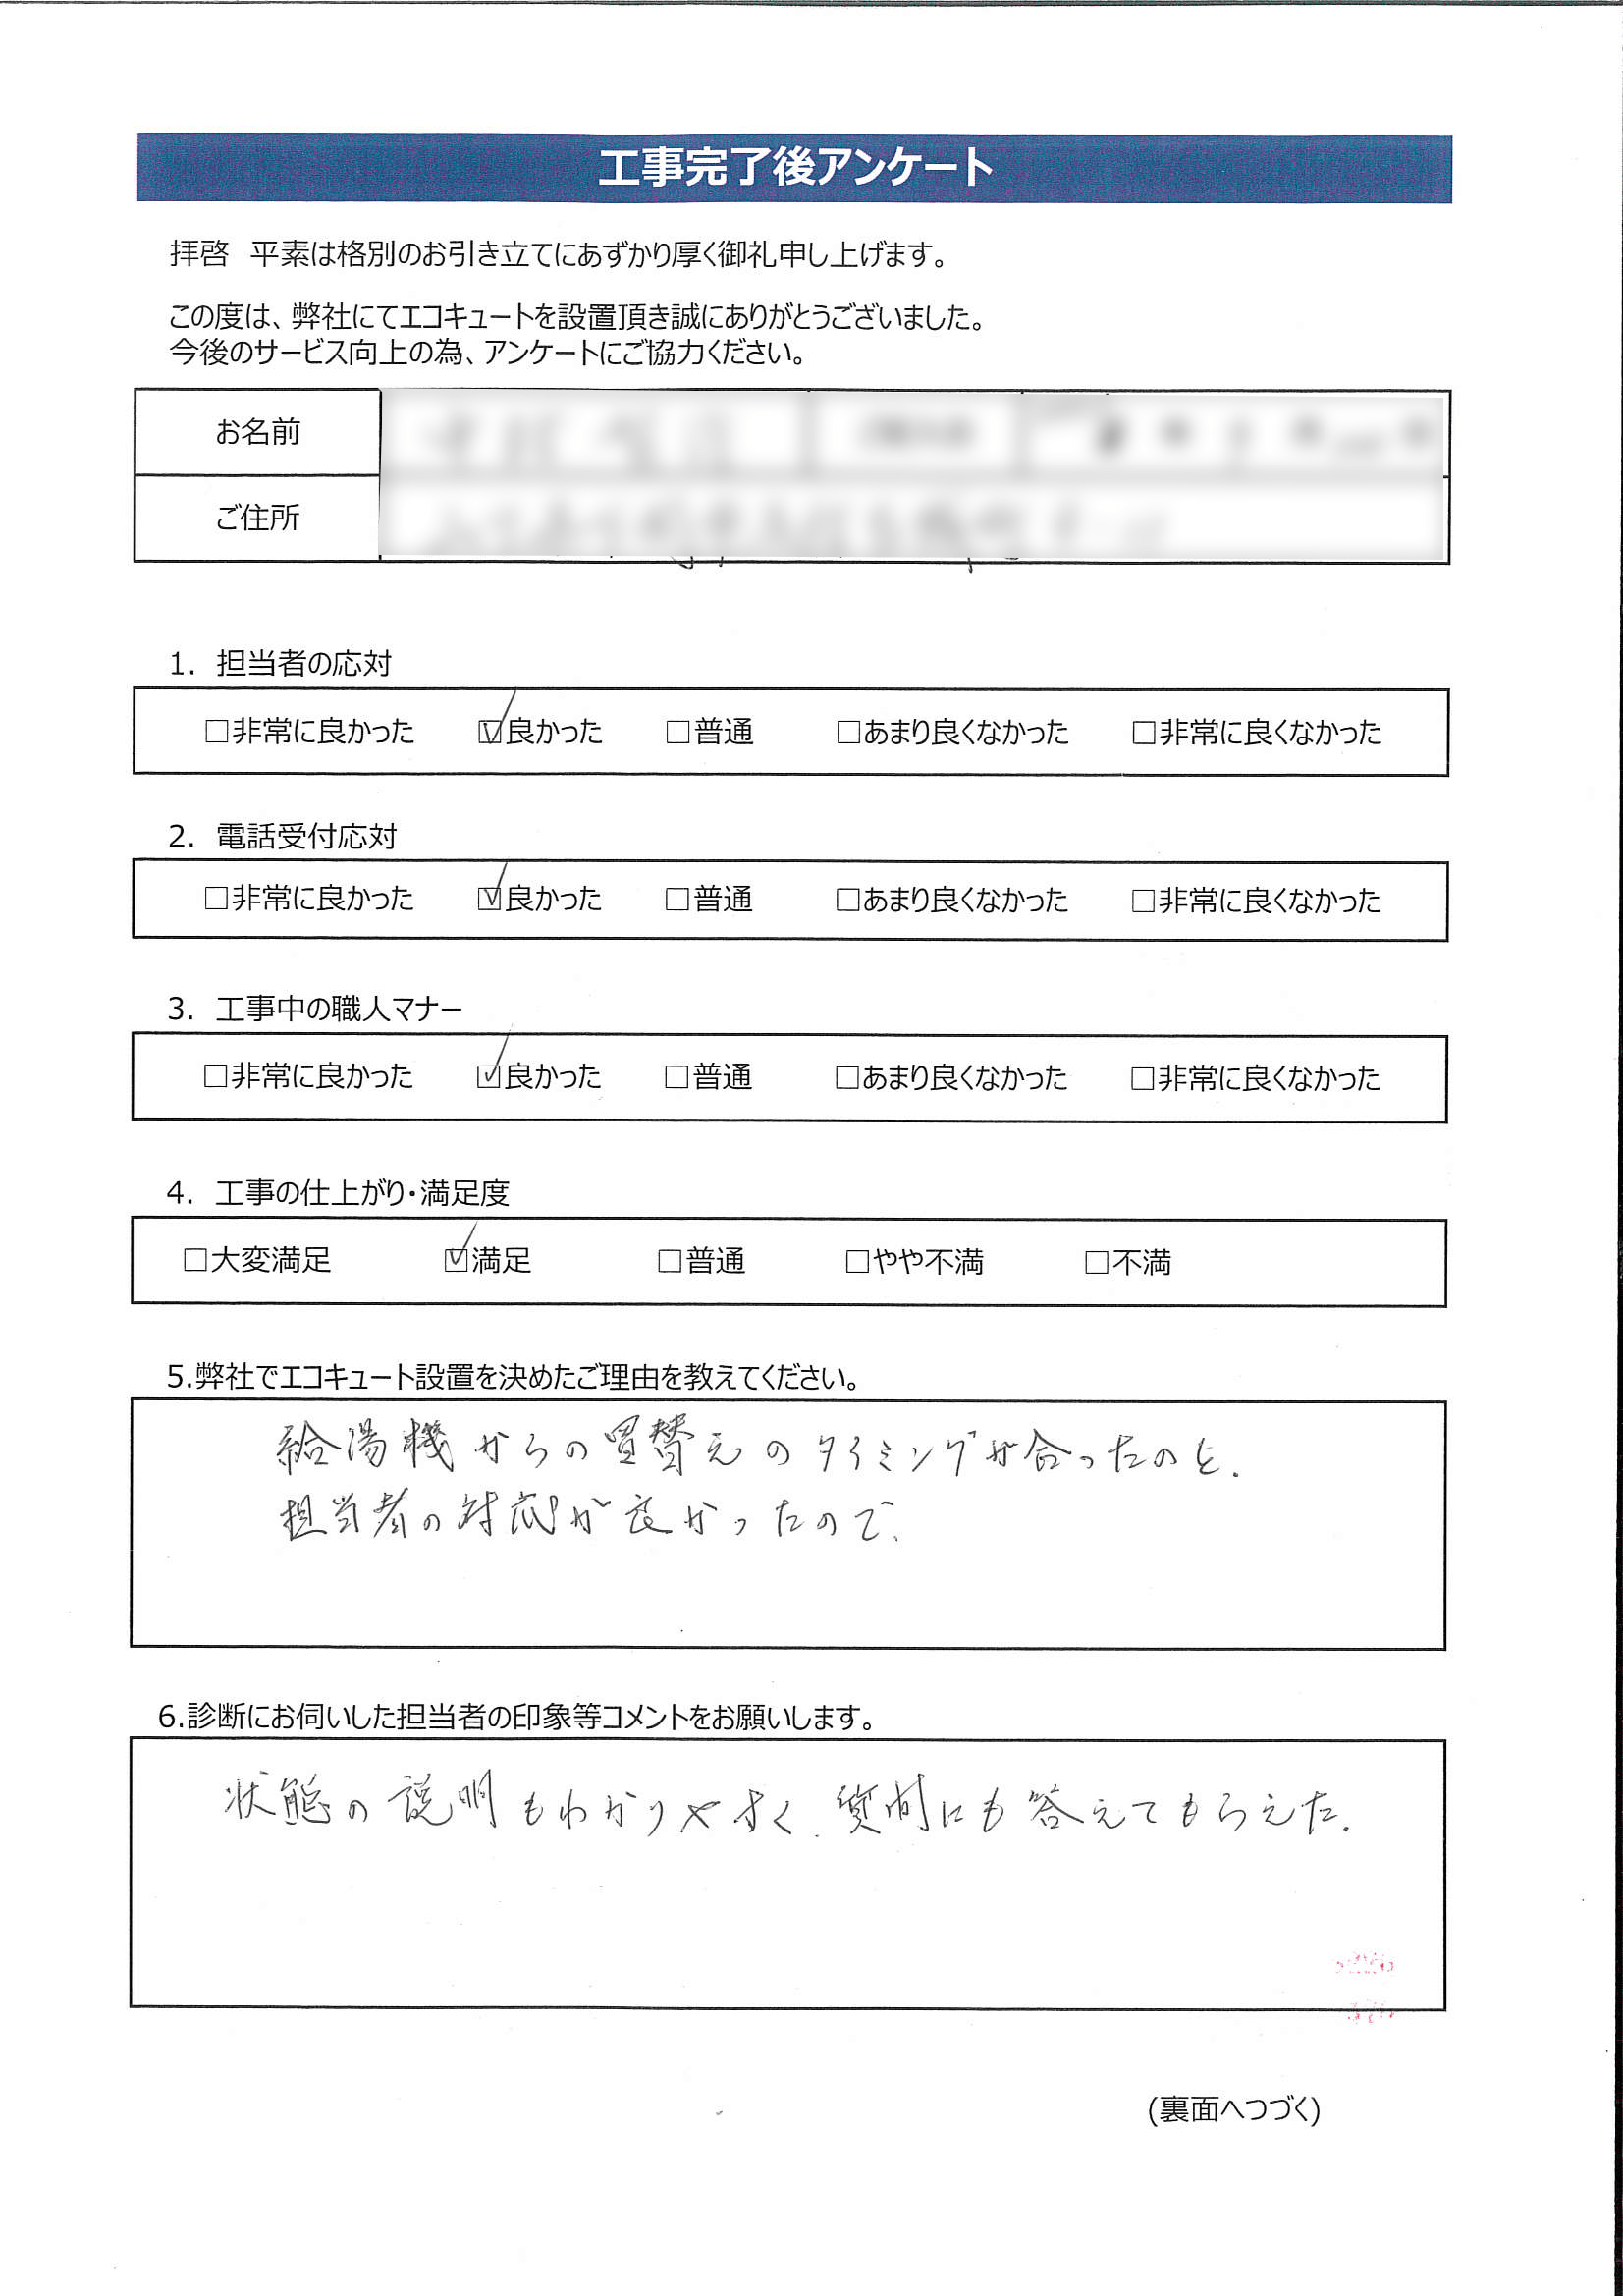 工事完了後アンケート
拝啓　平素は格別のお引き立てにあずかり厚く御礼申し上げます。
この度は、弊社にてエコキュートを設置頂き誠にありがとうございました。
今後のサービス向上の為、アンケートにご協力ください。
お名前
ご住所
1. 担当者の応対
□非常に良かった ☑良かった □普通 □あまり良くなかった □非常に良くなかった
2. 電話受付応対
□非常に良かった ☑良かった □普通 □あまり良くなかった □非常に良くなかった
3. 工事中の職人マナー
□非常に良かった ☑良かった □普通 □あまり良くなかった □非常に良くなかった
4. 工事の仕上がり・満足度
□大変満足 ☑満足 □普通 □やや不満 □不満
5.弊社でエコキュート設置を決めたご理由を教えてください。
給湯機からの買替えのタイミングが合ったのと、
担当者の対応が良かったので、
6.診断にお伺いした担当者の印象等コメントをお願いします。
状態の説明もわかりやすく、質問にも答えてもらえた。
(裏面へつづく)